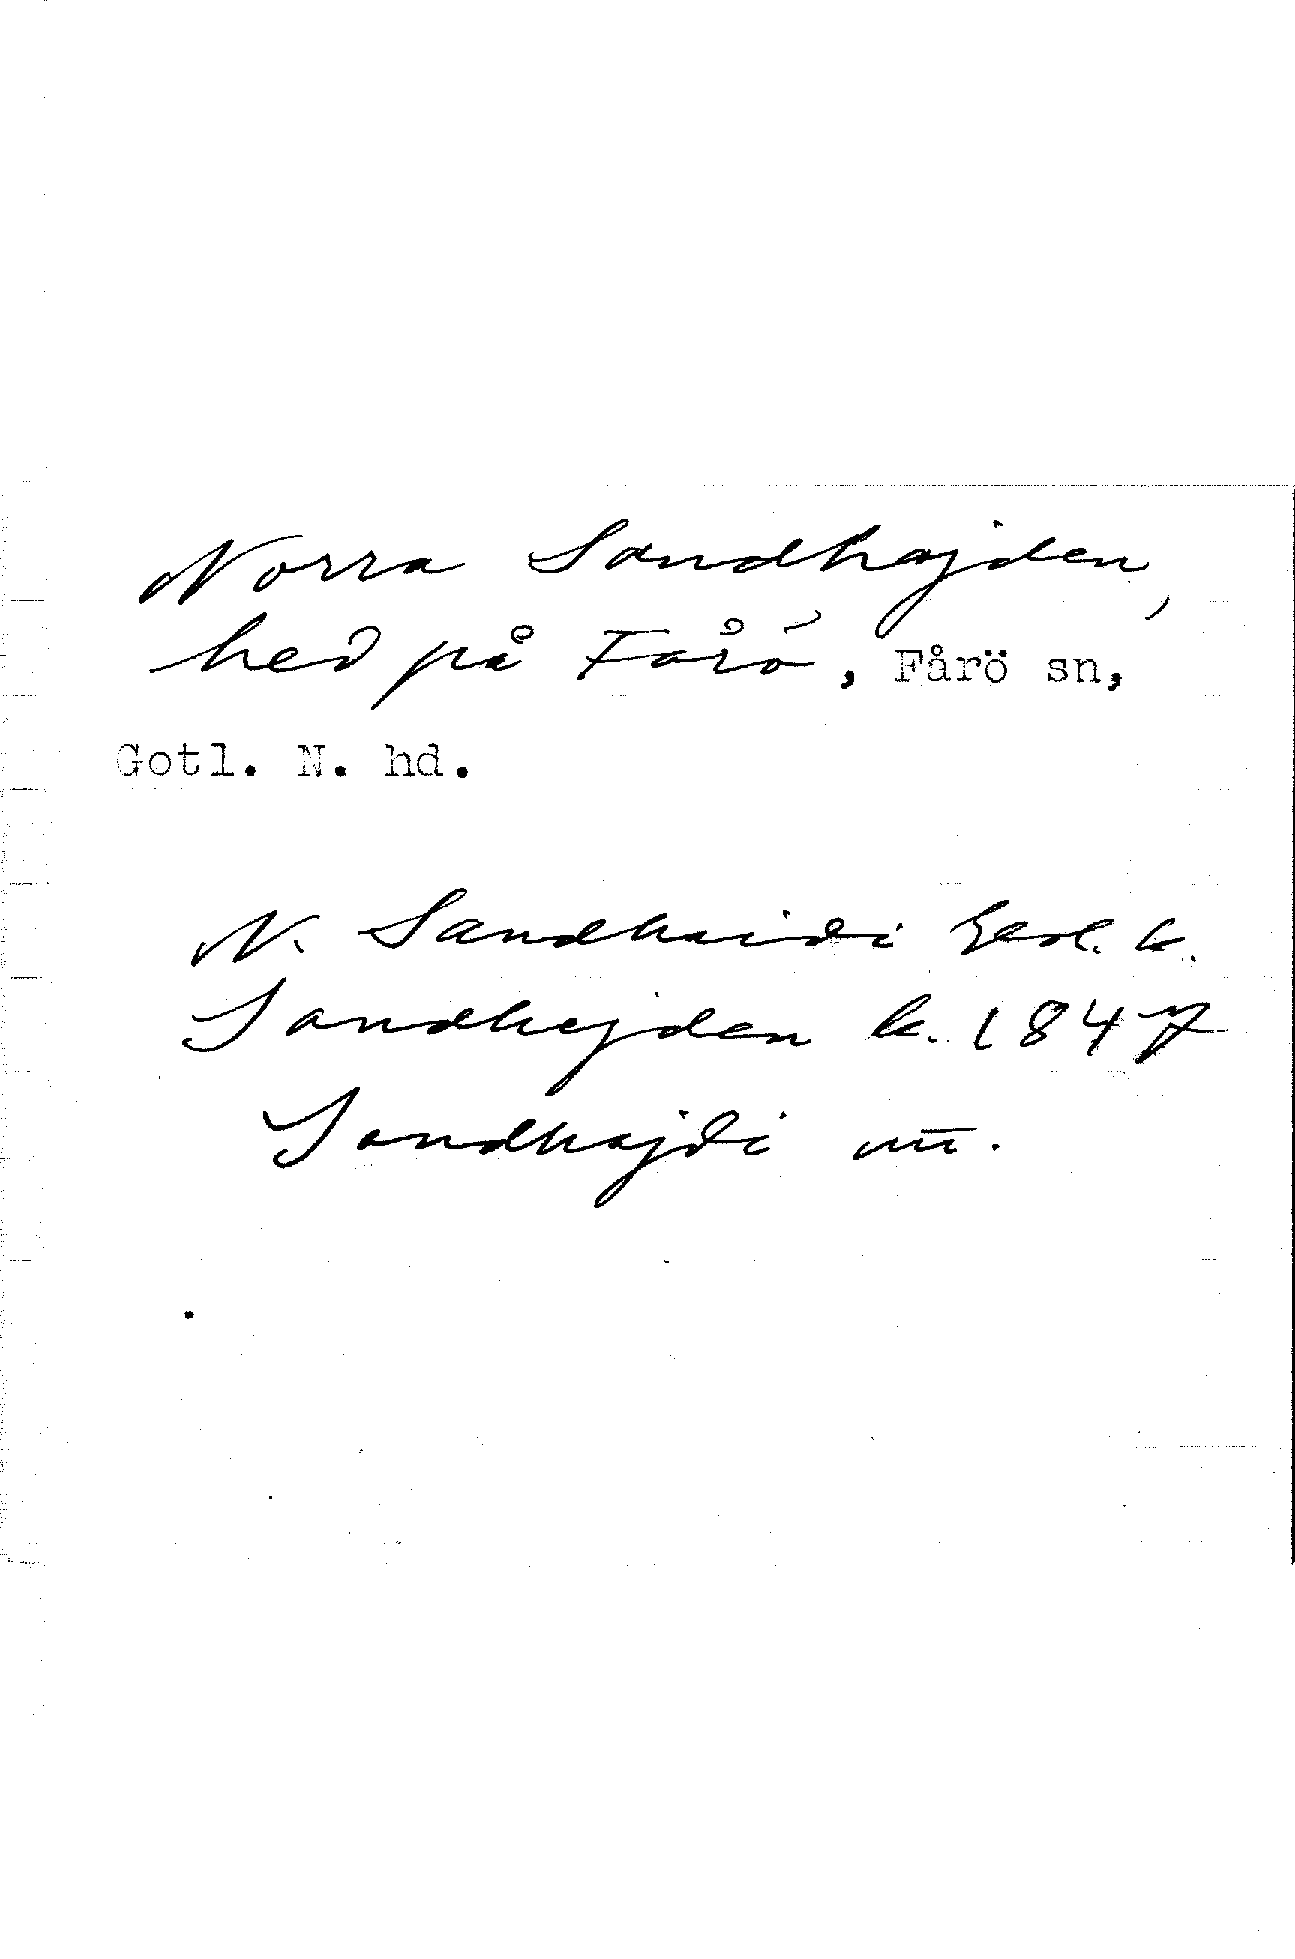 Norra Sandhajden,
hed på Fårö, Fårö sn,
Gotl. N. hd.
N. Sandhaidi k.
Sandhejden k. 1847
Sandhajdi